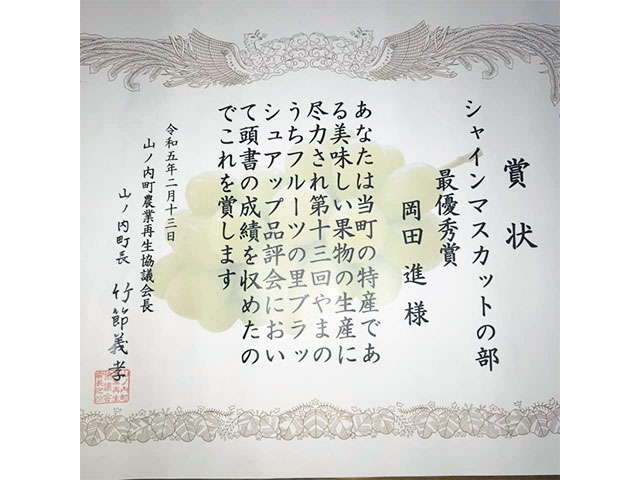 賞状
シャインマスカットの部
最優秀賞
岡田進様
あなたは当町の特産であ
る美味しい果物の生産に
尽力され第十三回やまの
うちフルーツの里ブラッ
シュアップ品評会におい
て頭書の成績を収めたの
でこれを賞します
令和五年二月十三日
山ノ内町農業再生協議会長
山ノ内町長 竹節義孝